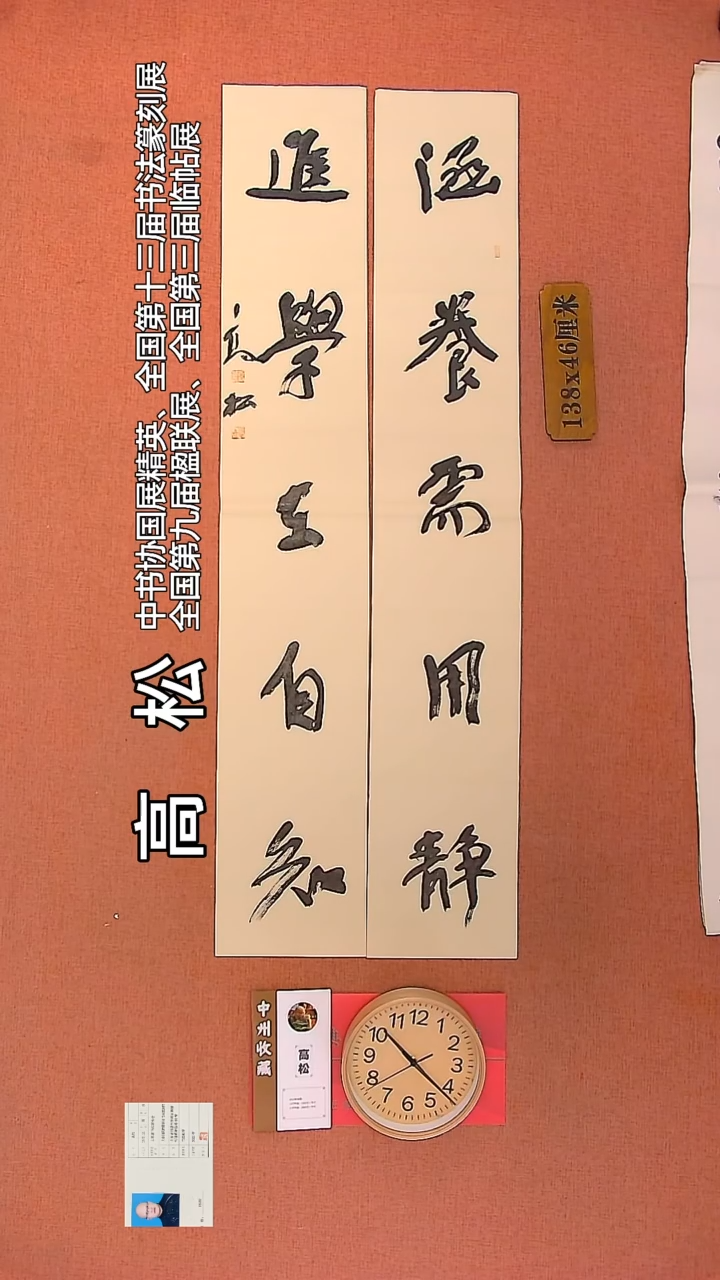 涵養需用靜
進學自知
高松
138x46厘米
高 松
中书协国展精英、全国第十三届书法篆刻展
全国第九届楹联展、全国第三届临帖展
高松
12
1
2
3
4
5
6
7
8
9
10
11